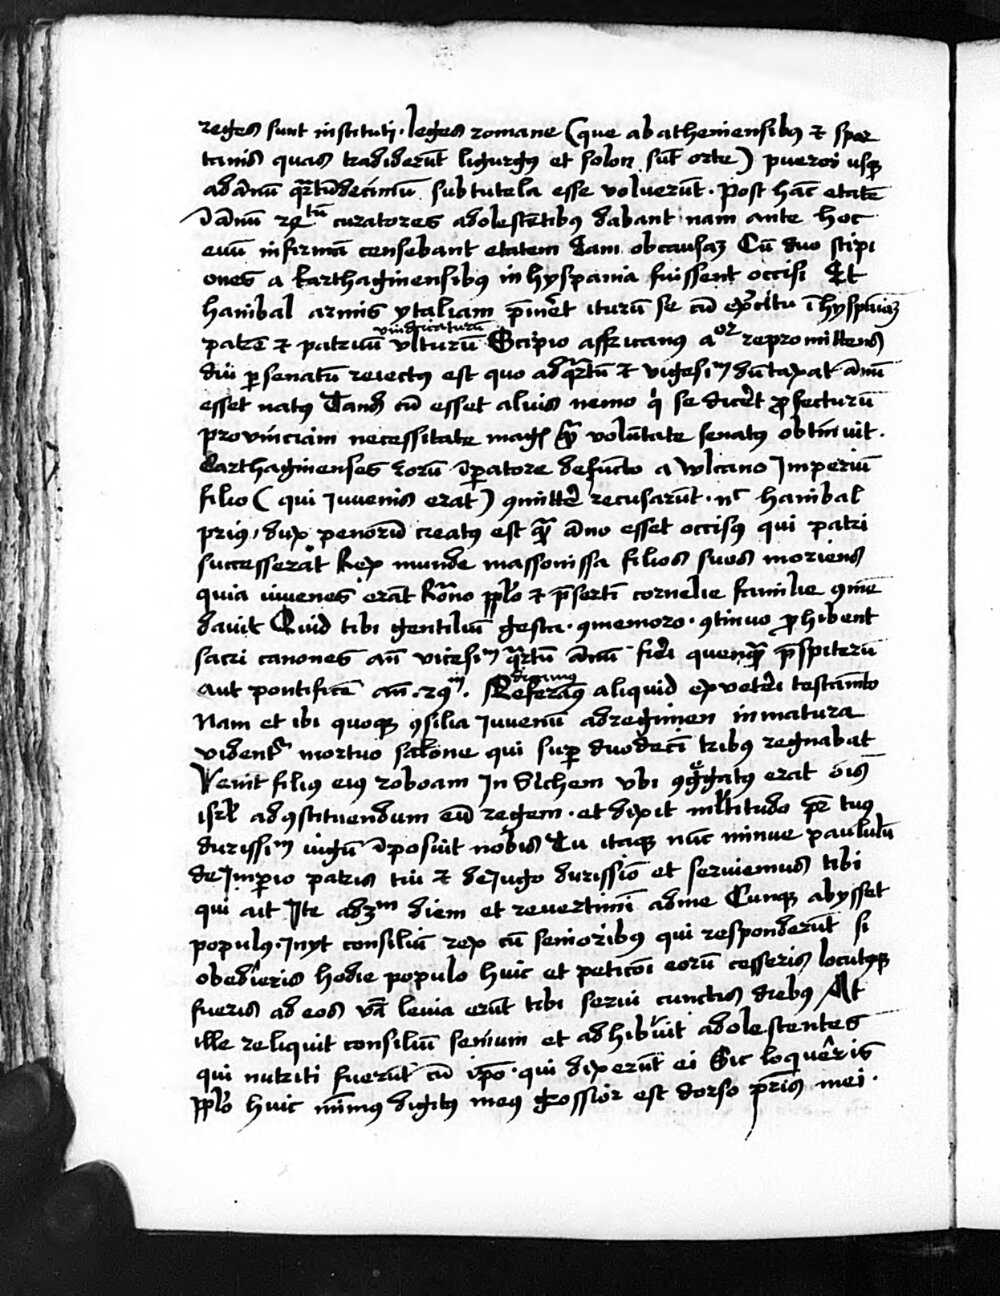 reges sunt instituti · leges romane (que ab atheniensibus et spar
tanis quas tradiderūt ligurgus et solon sūt orte) pueros usq
ad ānū quartūdecimū sub tutela esse voluerūt · Post hāc etatē
ī ānū 25tū curatores adolescētibus dabant nam ante hoc
euū infirmā censebant etatem Eam ob causaz Cū duo scipi
ones a karthaginensibus in hyspania fuissent occisi Et
hanibal armis ytaliam p̄meret iturū se cū exercitu ī hyspaniaz
patrē et patruū vindicaturū vlturū Scipio affricanus repromittens
diu per senatū reiectus est quo ad quartū et vigesim dūtaxat ānū
esset natus Tandem cū esset alius nemo qui se diceret profecturū
provinciam necessitate magis quam volūtate senatus obtinuit ·
Carthaginenses īperatore defuncto a Imperiū
filio (qui Iuvenis erat) committere recusarūt · nec hanibal
prius dux penorū creatus est quam āno esset occisus qui patri
successerat Rex massonissa filios suos moriens
quia iuvenes erāt Romano pplo et presertī cornelie familie comē
davit Quid tibi gentiliū gesta · comemoro · continuo prohibent
sacri canones an̄ vicesim quartū ānū fieri quenquam prespiterū
aut pontificē an̄ Referamus dicamus aliquid ex veteri testamento
Nam et ibi quoque consilia Iuvenū ad regimen inmatura
videntur mortuo salomone qui super duodecī tribus regnabat
Venit filius eius roboam In Sichem ubi congregatus erat ōis
isrl ad constituendum eū regem · et dixit multitudo pater tuus
durissim iugū īposuit nobis Tu itaque nūc minue paululū
de Imperio patris tui et de Iugo durissimo et serviemus tibi
qui ait Ite ad 3m diem et revertimini ad me Cunque abysset
populus · Inyt consiliū rex cū senioribus qui responderūt si
obedieris hodie populo huic et peticōi eorū cesseris locutusque
fueris ad eos verba levia erūt tibi servi cunctis diebus At
ille reliquit consiliū senium et adhibuit adolescentes
qui nutriti fuerūt cū ipso · qui dixerūt ei Sic loqueris
pplo huic minimus digitus meus grossior est dorso patris mei ·